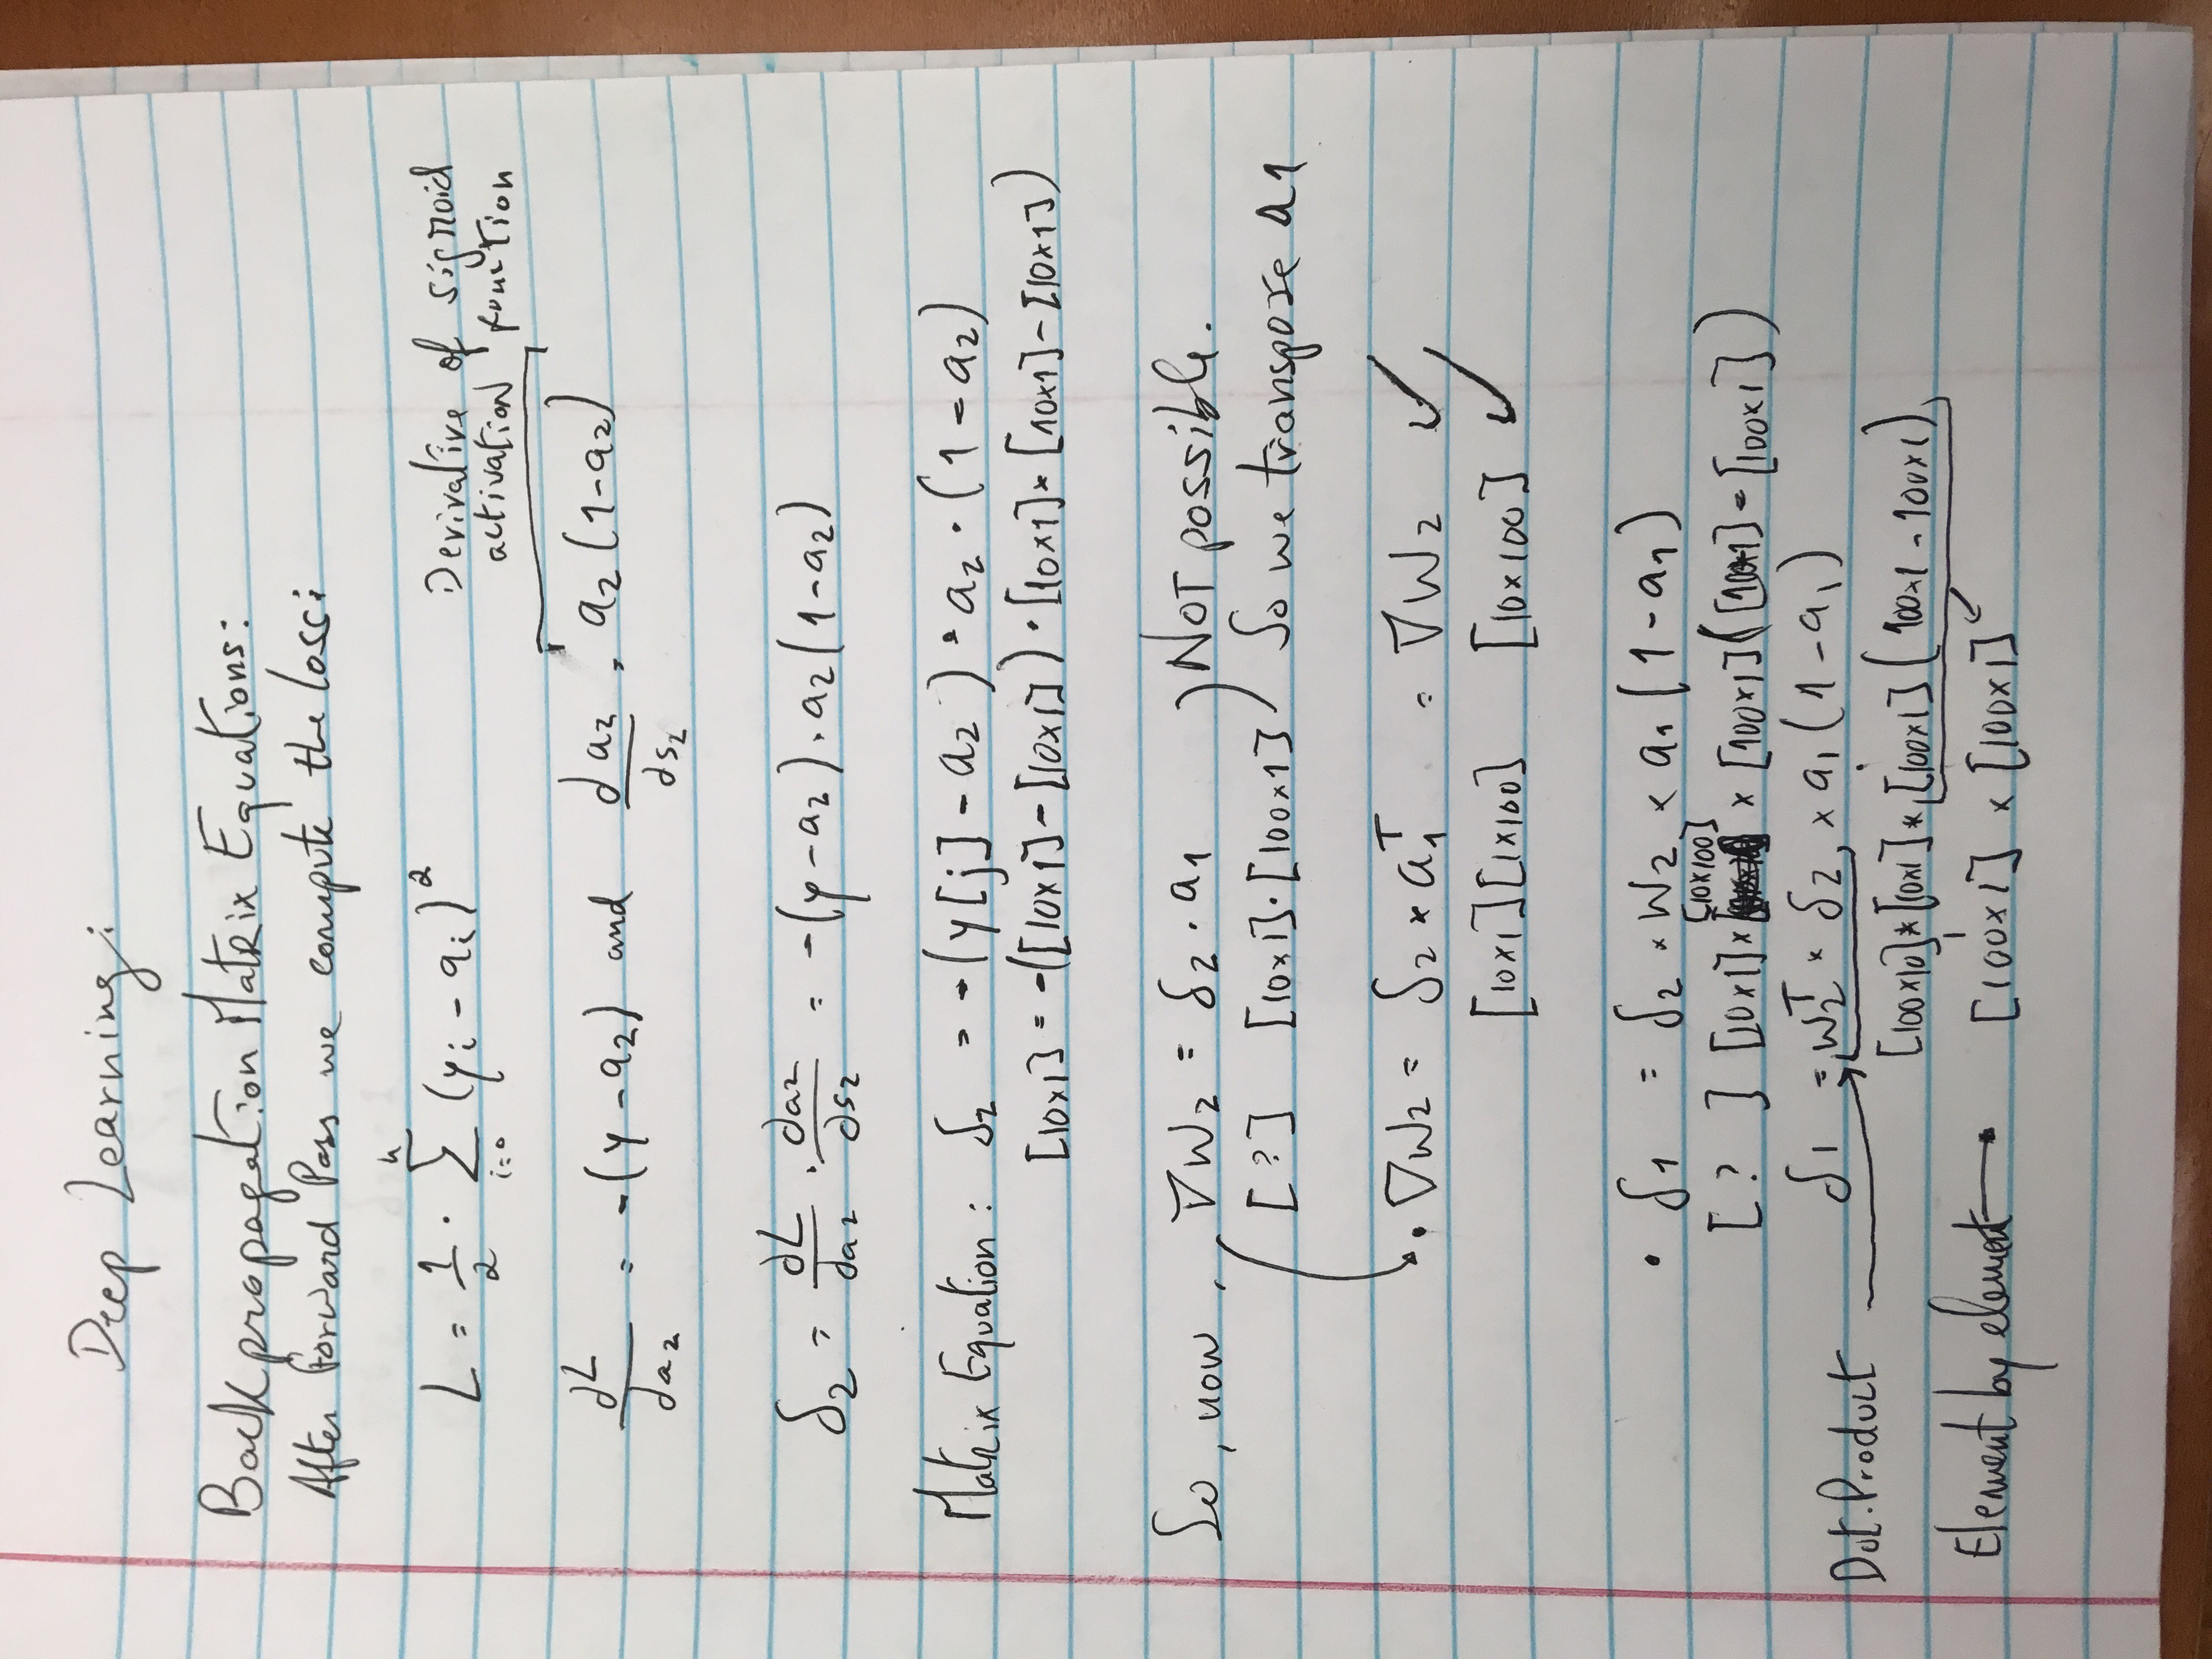 Deep Learning:
Backpropagation Matrix Equations:
After Forward Pass we compute the loss:
L = 1/2 · Σ_{i=0}^{n} (yi - ai)²
Derivative of sigmoid
activation function
∂L/∂a2 = -(y - a2) and ∂a2/∂s2 = a2(1-a2)
δ2 = ∂L/∂a2 · ∂a2/∂s2 = -(y - a2) · a2(1-a2)
Matrix Equation: δ2 = -(y[j] - a2) · a2 · (1 - a2)
[10x1] = -([10x1] - [10x1]) · [10x1] * [10x1] - [10x1])
So, now, ∇W2 = δ2 · a1 ) NOT possible.
[?] [10x1] · [100x1] So we transpose a1
• ∇W2 = δ2 × a1ᵀ = ∇W2 ✓
[10x1][1x100] [10x100] ✓
• δ1 = δ2 × W2 × a1(1-a1)
[10x100]
[ ? ] [10x1] × × [100x1]([100x1] - [100x1])
δ1 = W2ᵀ × δ2 × a1(1-a1)
Dot.Product →
[100x10] * [10x1] * [100x1](100x1 - 100x1)
Element by element → [100x1] × [100x1]